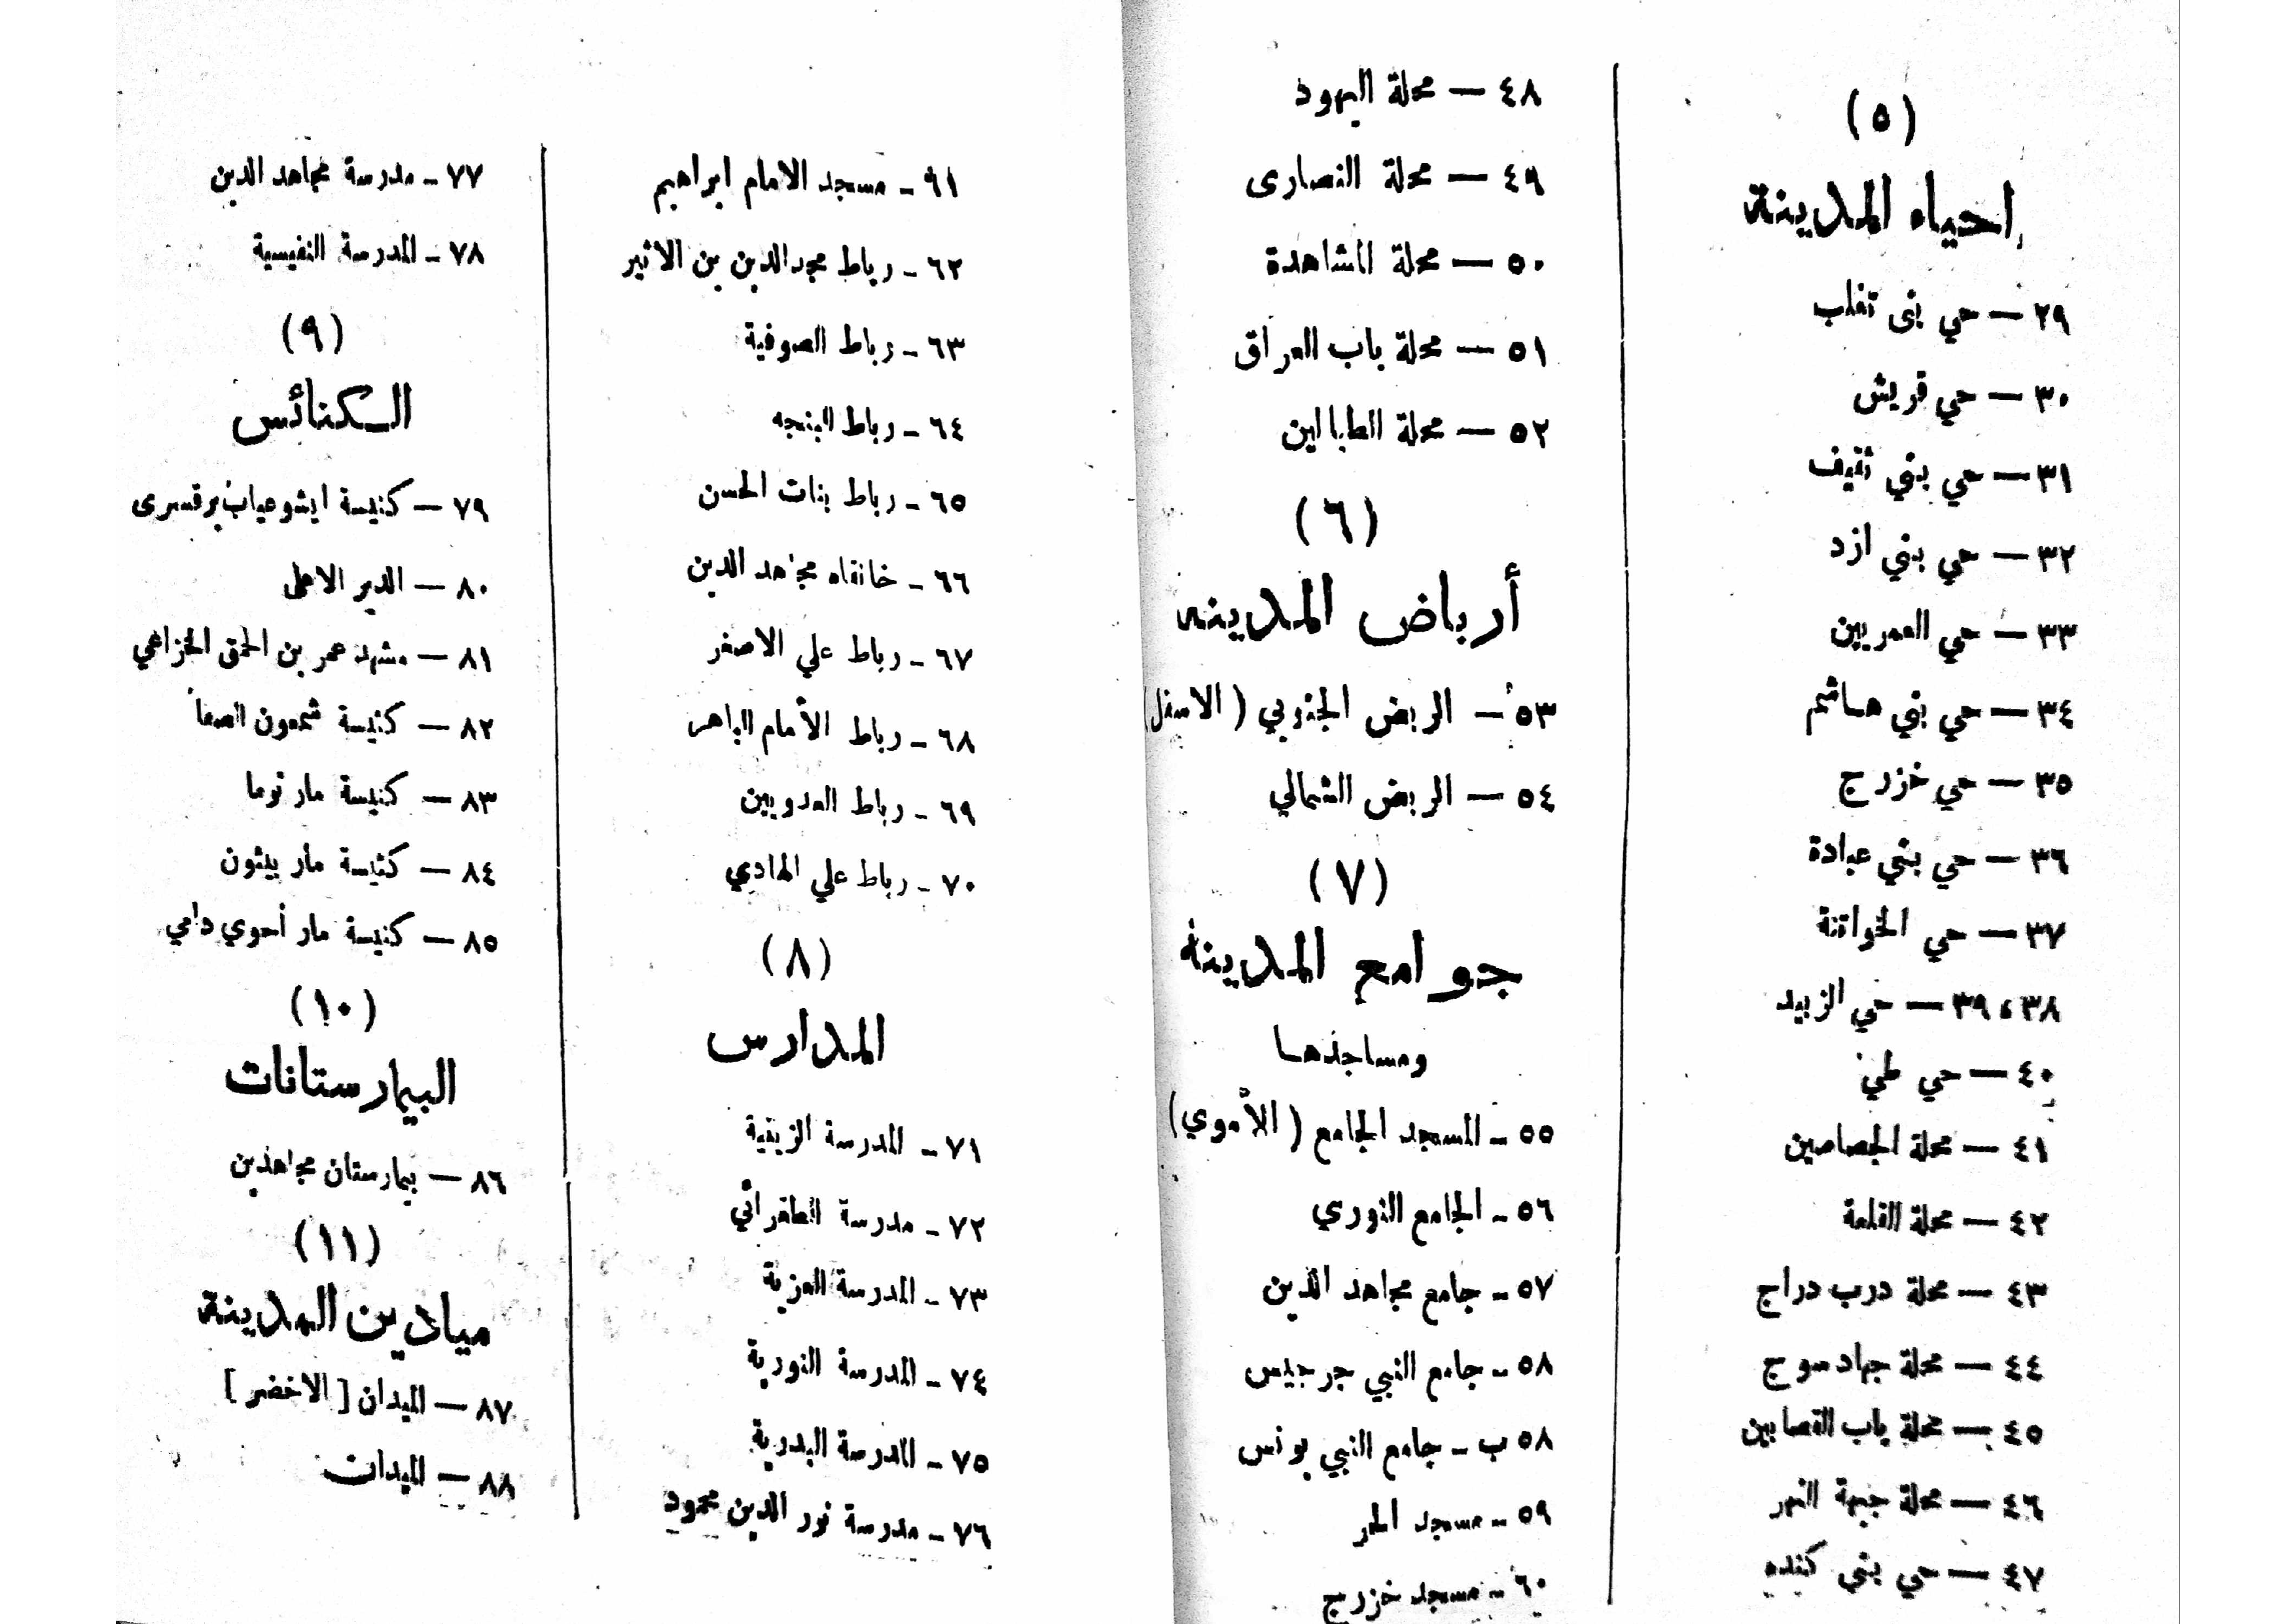 (٥)
احياء المدينة
٢٩ — حي بني تغلب
٣٠ — حي قريش
٣١ — حي بني ثقيف
٣٢ — حي بني ازد
٣٣ — حي العمريين
٣٤ — حي بني هاشم
٣٥ — حي خزرج
٣٦ — حي بني عبادة
٣٧ — حي الخواتنة
٣٨ ، ٣٩ — حي الزبيد
٤٠ — حي طي
٤١ — محلة الجصاصين
٤٢ — محلة القلعة
٤٣ — محلة درب دراج
٤٤ — محلة جهادسوج
٤٥ — محلة باب القصابين
٤٦ — محلة جبهة النهر
٤٧ — حي بني كنده
٤٨ — محلة اليهود
٤٩ — محلة النصارى
٥٠ — محلة المشاهدة
٥١ — محلة باب العراق
٥٢ — محلة الطبالين
(٦)
أرباض المدينه
٥٣ — الربض الجنوبي ( الاسفل )
٥٤ — الربض الشمالي
(٧)
جوامع المدينة
ومساجدها
٥٥ - المسجد الجامع ( الأموي )
٥٦ - الجامع النوري
٥٧ - جامع مجاهد الدين
٥٨ - جامع النبي جرجيس
٥٨ ب - جامع النبي يونس
٥٩ - مسجد
٦٠ - مسجد خزرج
٦١ - مسجد الامام ابراهيم
٦٢ - رباط مجد الدين بن الاثير
٦٣ - رباط الصوفية
٦٤ - رباط
٦٥ - رباط بنات الحسن
٦٦ - خانقاه مجاهد الدين
٦٧ - رباط علي الاصغر
٦٨ - رباط الأمام الباهر
٦٩ - رباط العدويين
٧٠ - رباط علي الهادي
(٨)
المدارس
٧١ - المدرسة الزينية
٧٢ - مدرسة الطغرائي
٧٣ - المدرسة العزية
٧٤ - المدرسة النورية
٧٥ - المدرسة البدرية
٧٦ - مدرسة نور الدين محمود
٧٧ - مدرسة مجاهد الدين
٧٨ - المدرسة النفيسية
(٩)
الكنائس
٧٩ — كنيسة ايشوعياب برقسرى
٨٠ — الدير الاعلى
٨١ — مشهد عمر بن الحمق الخزاعي
٨٢ — كنيسة شمعون الصفا
٨٣ — كنيسة مار توما
٨٤ — كنيسة مار بيثون
٨٥ — كنيسة مار أحوي دامي
(١٠)
البيمارستانات
٨٦ — بيمارستان مجاهدين
(١١)
ميادين المدينة
٨٧ — الميدان [ الاخضر ]
٨٨ — الميدان